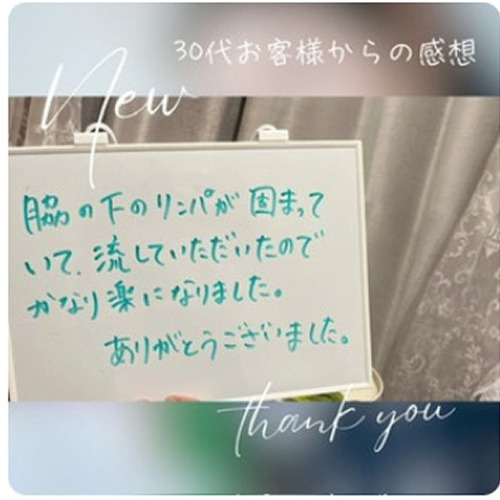 30代お客様からの感想
New
脇の下のリンパが固まって
いて、流していただいたので
かなり楽になりました。
ありがとうございました。
thank you